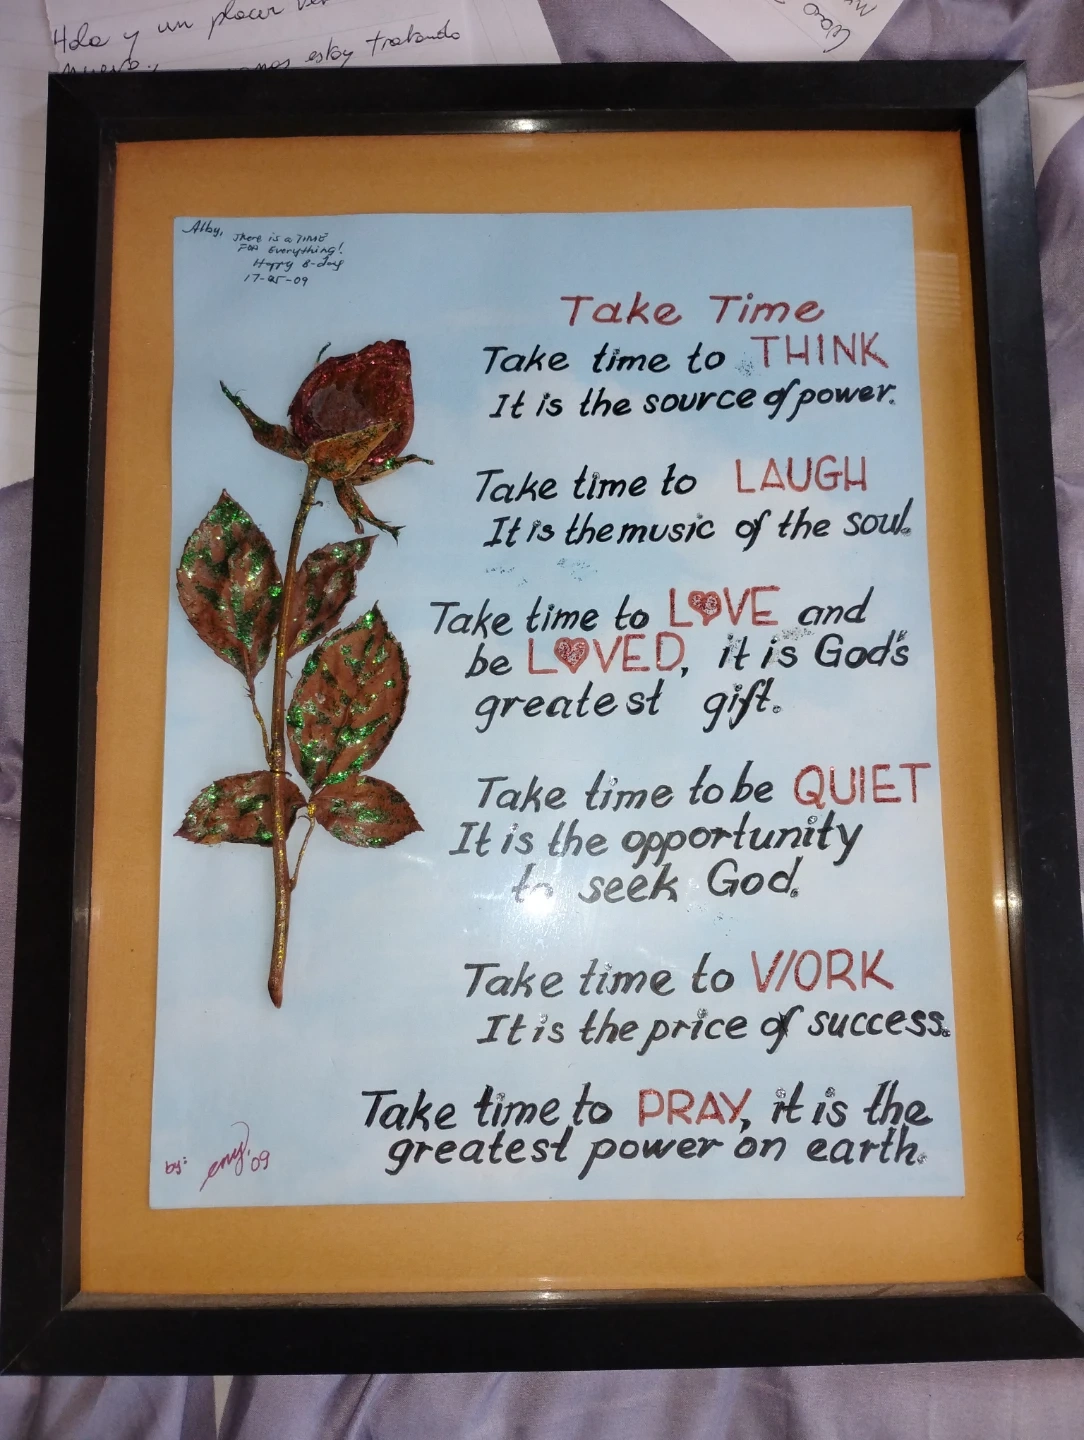 Hola y un placer
estoy tratando
Alby, There is a TIME
FOR Everything!
Happy B-day
17-05-09
Take Time
Take time to THINK
It is the source of power.
Take time to LAUGH
It is the music of the soul.
Take time to LOVE and
be LOVED, it is God's
greatest gift.
Take time to be QUIET
It is the opportunity
to seek God.
Take time to WORK
It is the price of success.
Take time to PRAY, it is the
greatest power on earth.
by: eny. '09